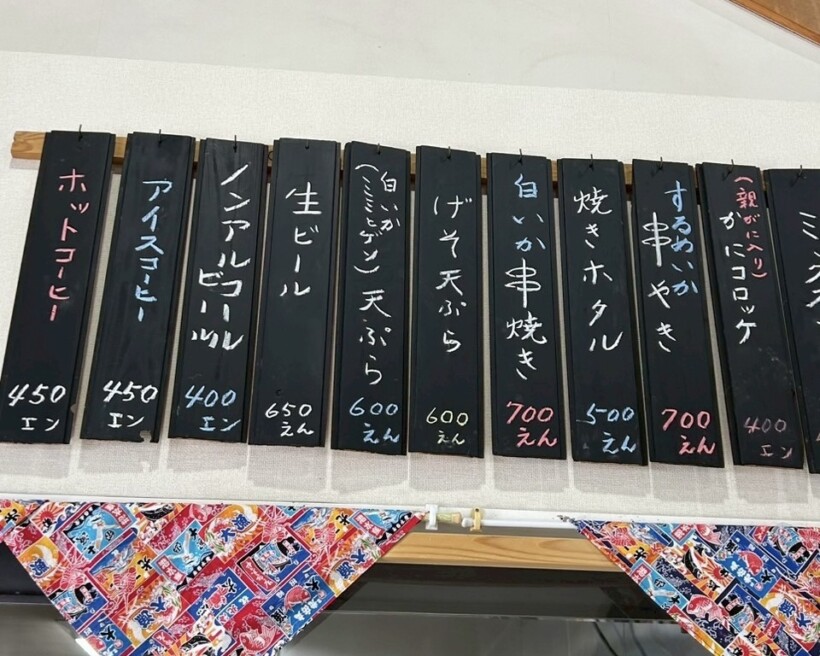 (親がに入り)
かにコロッケ
400
エン
するめいか
串やき
700
えん
焼きホタル
500
えん
白いか串焼き
700
えん
げそ天ぷら
600
えん
白いか
(ミミとゲソ)天ぷら
600
えん
生ビール
650
えん
ノンアルコール
ビール
400
エン
アイスコーヒー
450
エン
ホットコーヒー
450
エン